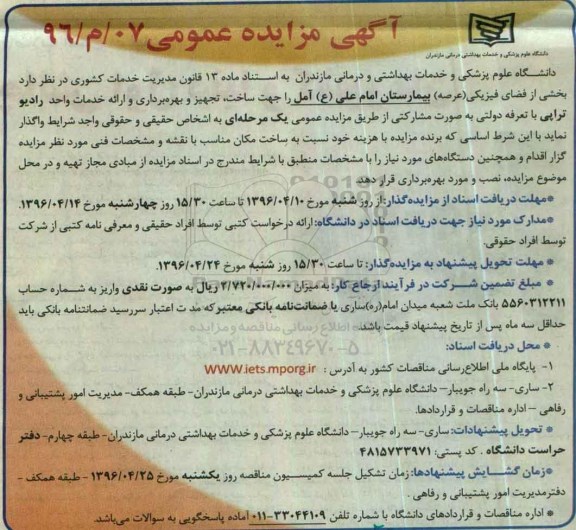 آگهی مزایده عمومی ۰۷/م/۹۶
دانشگاه علوم پزشکی و خدمات بهداشتی درمانی مازندران
دانشگاه علوم پزشکی و خدمات بهداشتی و درمانی مازندران به استناد ماده ۱۳ قانون مدیریت خدمات کشوری در نظر دارد
بخشی از فضای فیزیکی(عرصه) بیمارستان امام علی (ع) آمل را جهت ساخت، تجهیز و بهره‌برداری و ارائه خدمات واحد رادیو
تراپی با تعرفه دولتی به صورت مشارکتی از طریق مزایده عمومی یک مرحله‌ای به اشخاص حقیقی و حقوقی واجد شرایط واگذار
نماید با این شرط اساسی که برنده مزایده با هزینه خود نسبت به ساخت مکان مناسب با نقشه و مشخصات فنی مورد نظر مزایده
گزار اقدام و همچنین دستگاه‌های مورد نیاز را با مشخصات منطبق با شرایط مندرج در اسناد مزایده از مبادی مجاز تهیه و در محل
موضوع مزایده، نصب و مورد بهره‌برداری قرار دهد.
*مهلت دریافت اسناد از مزایده‌گذار: از روز شنبه مورخ ۱۳۹۶/۰۴/۱۰ تا ساعت ۱۵/۳۰ روز چهارشنبه مورخ ۱۳۹۶/۰۴/۱۴.
*مدارک مورد نیاز جهت دریافت اسناد در دانشگاه: ارائه درخواست کتبی توسط افراد حقیقی و معرفی نامه کتبی از شرکت
توسط افراد حقوقی.
* مهلت تحویل پیشنهاد به مزایده‌گذار: تا ساعت ۱۵/۳۰ روز شنبه مورخ ۱۳۹۶/۰۴/۲۴.
* مبلغ تضمین شرکت در فرآیند ارجاع کار: به میزان ۲/۷۲۰/۰۰۰/۰۰۰ ریال به صورت نقدی واریز به شماره حساب
۵۵۶۰۳۱۲۲۱۱ بانک ملت شعبه میدان امام(ره)ساری یا ضمانت‌نامه بانکی معتبر که مدت اعتبار سررسید ضمانتنامه بانکی باید
حداقل سه ماه پس از تاریخ پیشنهاد قیمت باشد.
پایگاه اطلاع رسانی مناقصه و مزایده
۰۲۱-۸۸۳۴۹۶۷۰-۵
* محل دریافت اسناد:
۱- پایگاه ملی اطلاع‌رسانی مناقصات کشور به آدرس : www.iets.mporg.ir
۲- ساری- سه راه جویبار- دانشگاه علوم پزشکی و خدمات بهداشتی درمانی مازندران- طبقه همکف- مدیریت امور پشتیبانی و
رفاهی – اداره مناقصات و قراردادها.
* تحویل پیشنهادات: ساری- سه راه جویبار- دانشگاه علوم پزشکی و خدمات بهداشتی درمانی مازندران- طبقه چهارم- دفتر
حراست دانشگاه . کد پستی: ۴۸۱۵۷۳۳۹۷۱
*زمان گشایش پیشنهادها: زمان تشکیل جلسه کمیسیون مناقصه روز یکشنبه مورخ ۱۳۹۶/۰۴/۲۵ – طبقه همکف -
دفتر مدیریت امور پشتیبانی و رفاهی .
* اداره مناقصات و قراردادهای دانشگاه با شماره تلفن ۳۳۰۴۴۱۰۹-۰۱۱ آماده پاسخگویی به سوالات می‌باشد.